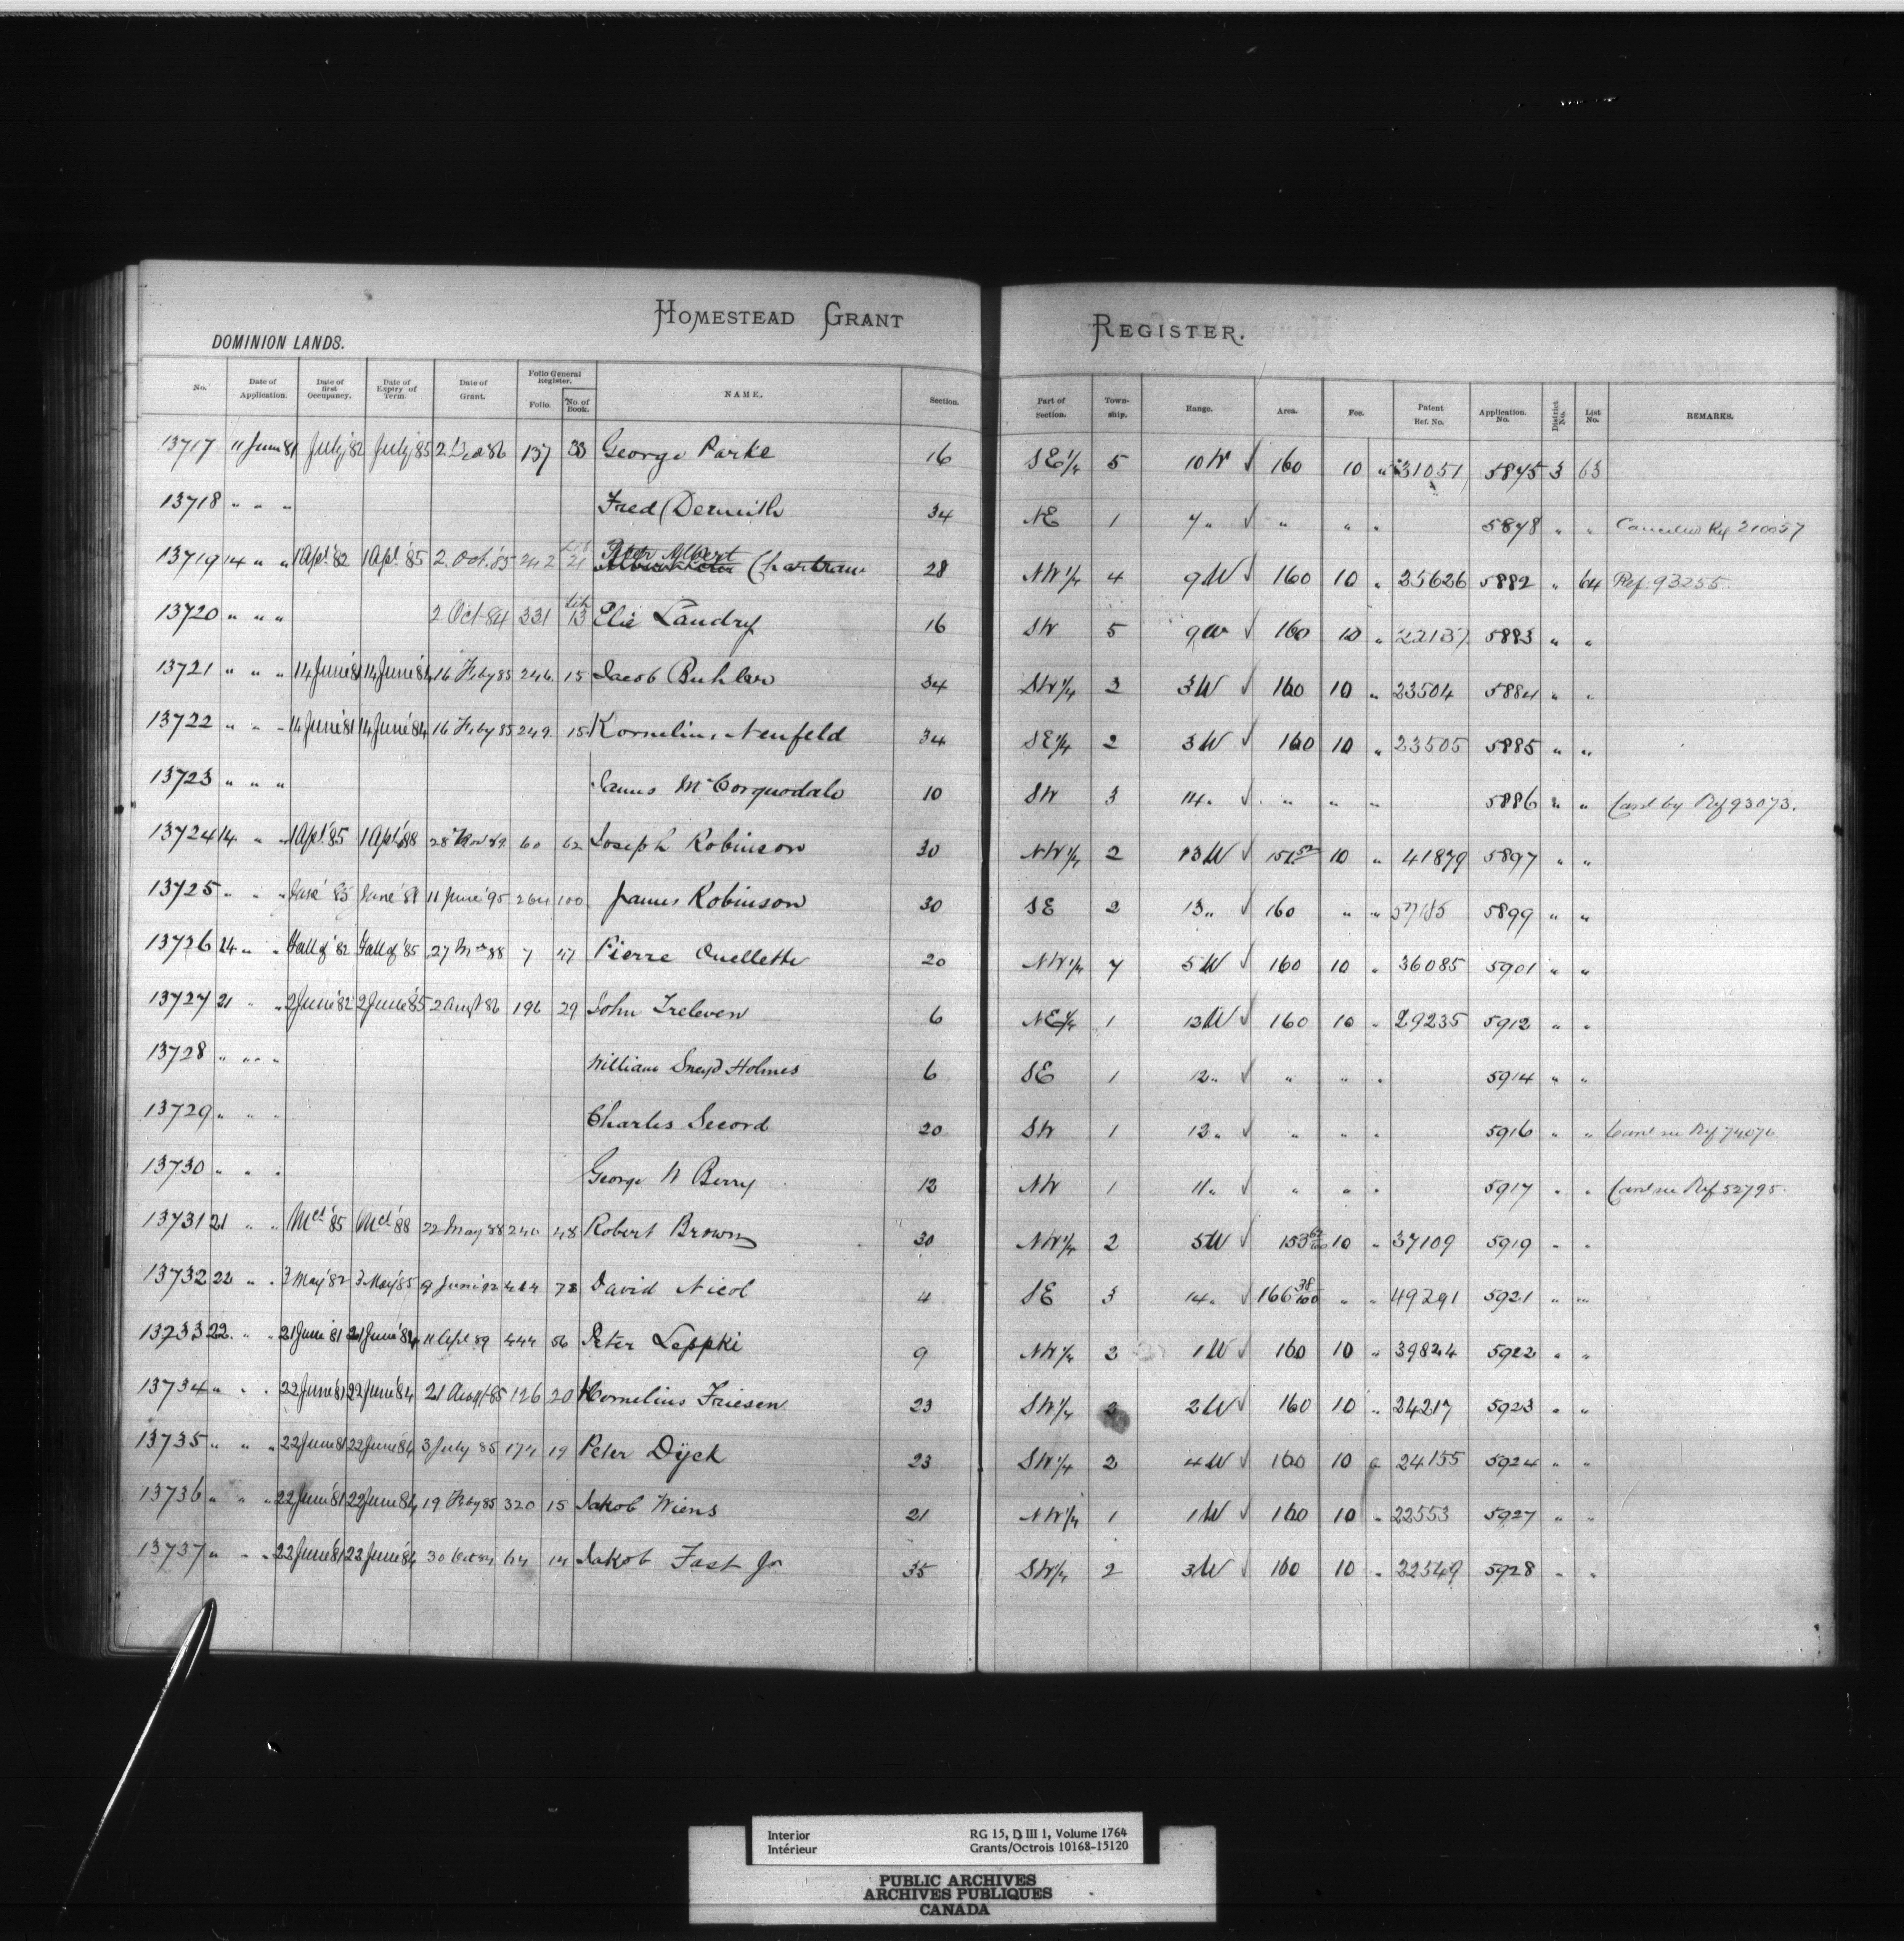 HOMESTEAD GRANT REGISTER.
DOMINION LANDS.
No. Date of Application. Date of first Occupancy. Date of Expiry of Term. Date of Grant. Folio General Register. Folio. No. of Book. NAME. Section. Part of Section. Town-ship. Range. Area. Fee. Patent Ref. No. Application No. District No. List No. REMARKS.
13717 11 June 81 July '82 July '85 2 Dec 86 137 33 George Parke 16 SE 1/4 5 10 W √ 160 10 " 31051 5875 3 63
13718 " " " Fred Dermith 34 NE 1 7 " √ " " " 5878 " " Cancelled Ref 210057
13719 14 " " 1 Apl. '82 1 Apl. '85 2. Oct. '85 242 21 Peter Albert Chartrand 28 NW 1/4 4 9 W √ 160 10 " 25626 5882 " 64 Ref. 93255
13720 " " " 2 Oct 84 331 13 Elie Landry 16 SW 5 9 W √ 160 10 " 22137 5883 " "
13721 " " " 14 June '81 14 June '84 16 Feby 85 246 15 Jacob Buhler 34 SW 1/4 2 3 W √ 160 10 " 23504 5884 " "
13722 " " " 14 June '81 14 June '84 16 Feby 85 249. 15 Kornelius Neufeld 34 SE 1/4 2 3 W √ 160 10 " 23505 5885 " "
13723 " " " James McCorquodale 10 SW 3 14 " √ " " " 5886 " " Cand by Ref 93073.
13724 14 " " 1 Apl. '85 1 Apl. '88 28 Nov 89 60 62 Joseph Robinson 30 NW 1/4 2 13 W √ 10 " 41879 5897 " "
13725 " " " June '95 264 100 James Robinson 30 SE 2 13 " √ 160 " " 57185 5899 " "
13726 14 " " Fall of '82 Fall of '85 27 Mar 88 7 47 Pierre Ouellette 20 NW 1/4 7 5 W √ 160 10 " 36085 5901 " "
13727 21 " " 2 June '82 2 June '85 2 Augt 86 196 29 John Treleven 6 NE 1/4 1 12 W √ 160 10 " 29235 5912 " "
13728 " " " William Sneyd Holmes 6 SE 1 12 " √ " " " 5914 " "
13729 " " " Charles Secord 20 SW 1 12 " √ " " " 5916 " " Cand see Ref 74076
13730 " " " George W Berry 12 NW 1 11 " √ " " " 5917 " " Cand see Ref 52795.
13731 21 " " '85 '88 22 May 88 240 48 Robert Brown 30 NW 1/4 2 5 W √ 10 " 37109 5919 " "
13732 22 " " 3 May '82 3 May '85 9 June '92 78 David Nicol 4 SE 3 14 " √ 166 38/100 " " 49291 5921 " "
13733 22. " " 21 June '81 21 June '84 11 Apl 89 444 56 Peter Leppki 9 NW 1/4 2 1 W √ 160 10 " 39824 5922 " "
13734 " " " 22 June '81 22 June '84 21 Augt 85 126 20 Kornelius Friesen 23 SW 1/4 2 2 W √ 160 10 " 24217 5923 " "
13735 " " " 22 June 81 22 June '84 3 July 85 174 19 Peter Dÿck 23 SW 1/4 2 4 W √ 160 10 " 24155 5924 " "
13736 " " " 22 June '81 22 June '84 19 Feby 85 320 15 Jakob Wiens 21 NW 1/4 1 1 W √ 160 10 " 22553 5927 " "
13737 " " " 22 June '81 22 June '84 30 Oct 84 64 14 Jakob Fast Jr 35 SW 1/4 2 3 W √ 160 10 " 22549 5928 " "
Interior RG 15, D III 1, Volume 1764
Intérieur Grants/Octrois 10168-15120
PUBLIC ARCHIVES
ARCHIVES PUBLIQUES
CANADA